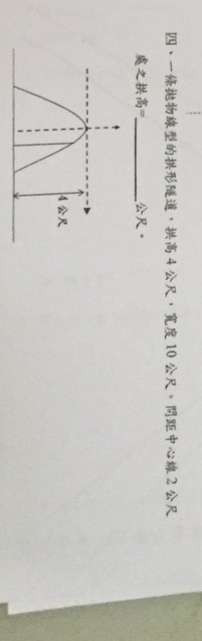 四、一條拋物線型的拱形隧道，拱高 4 公尺，寬度 10 公尺。問距中心線 2 公尺
處之拱高=________公尺。
4 公尺